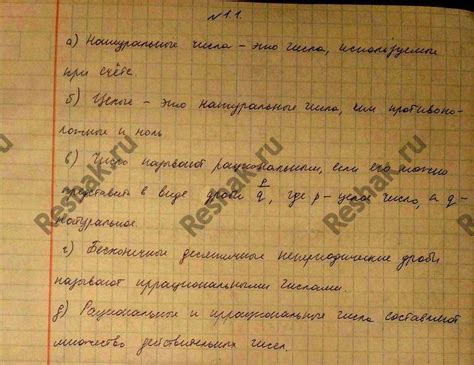 №1.1.
а) Натуральные числа – это числа, используемые
при счёте.
б) Целые – это натуральные числа, им противопо-
ложные и ноль
в) Число называют рациональным, если его можно
представить в виде дроби p/q, где p – целое число, а q –
натуральное.
г) Бесконечные десятичные непериодические дроби
называют иррациональными числами.
д) Рациональные и иррациональные числа составляют
множество действительных чисел.
Reshak.ru
Reshak.ru
Reshak.ru